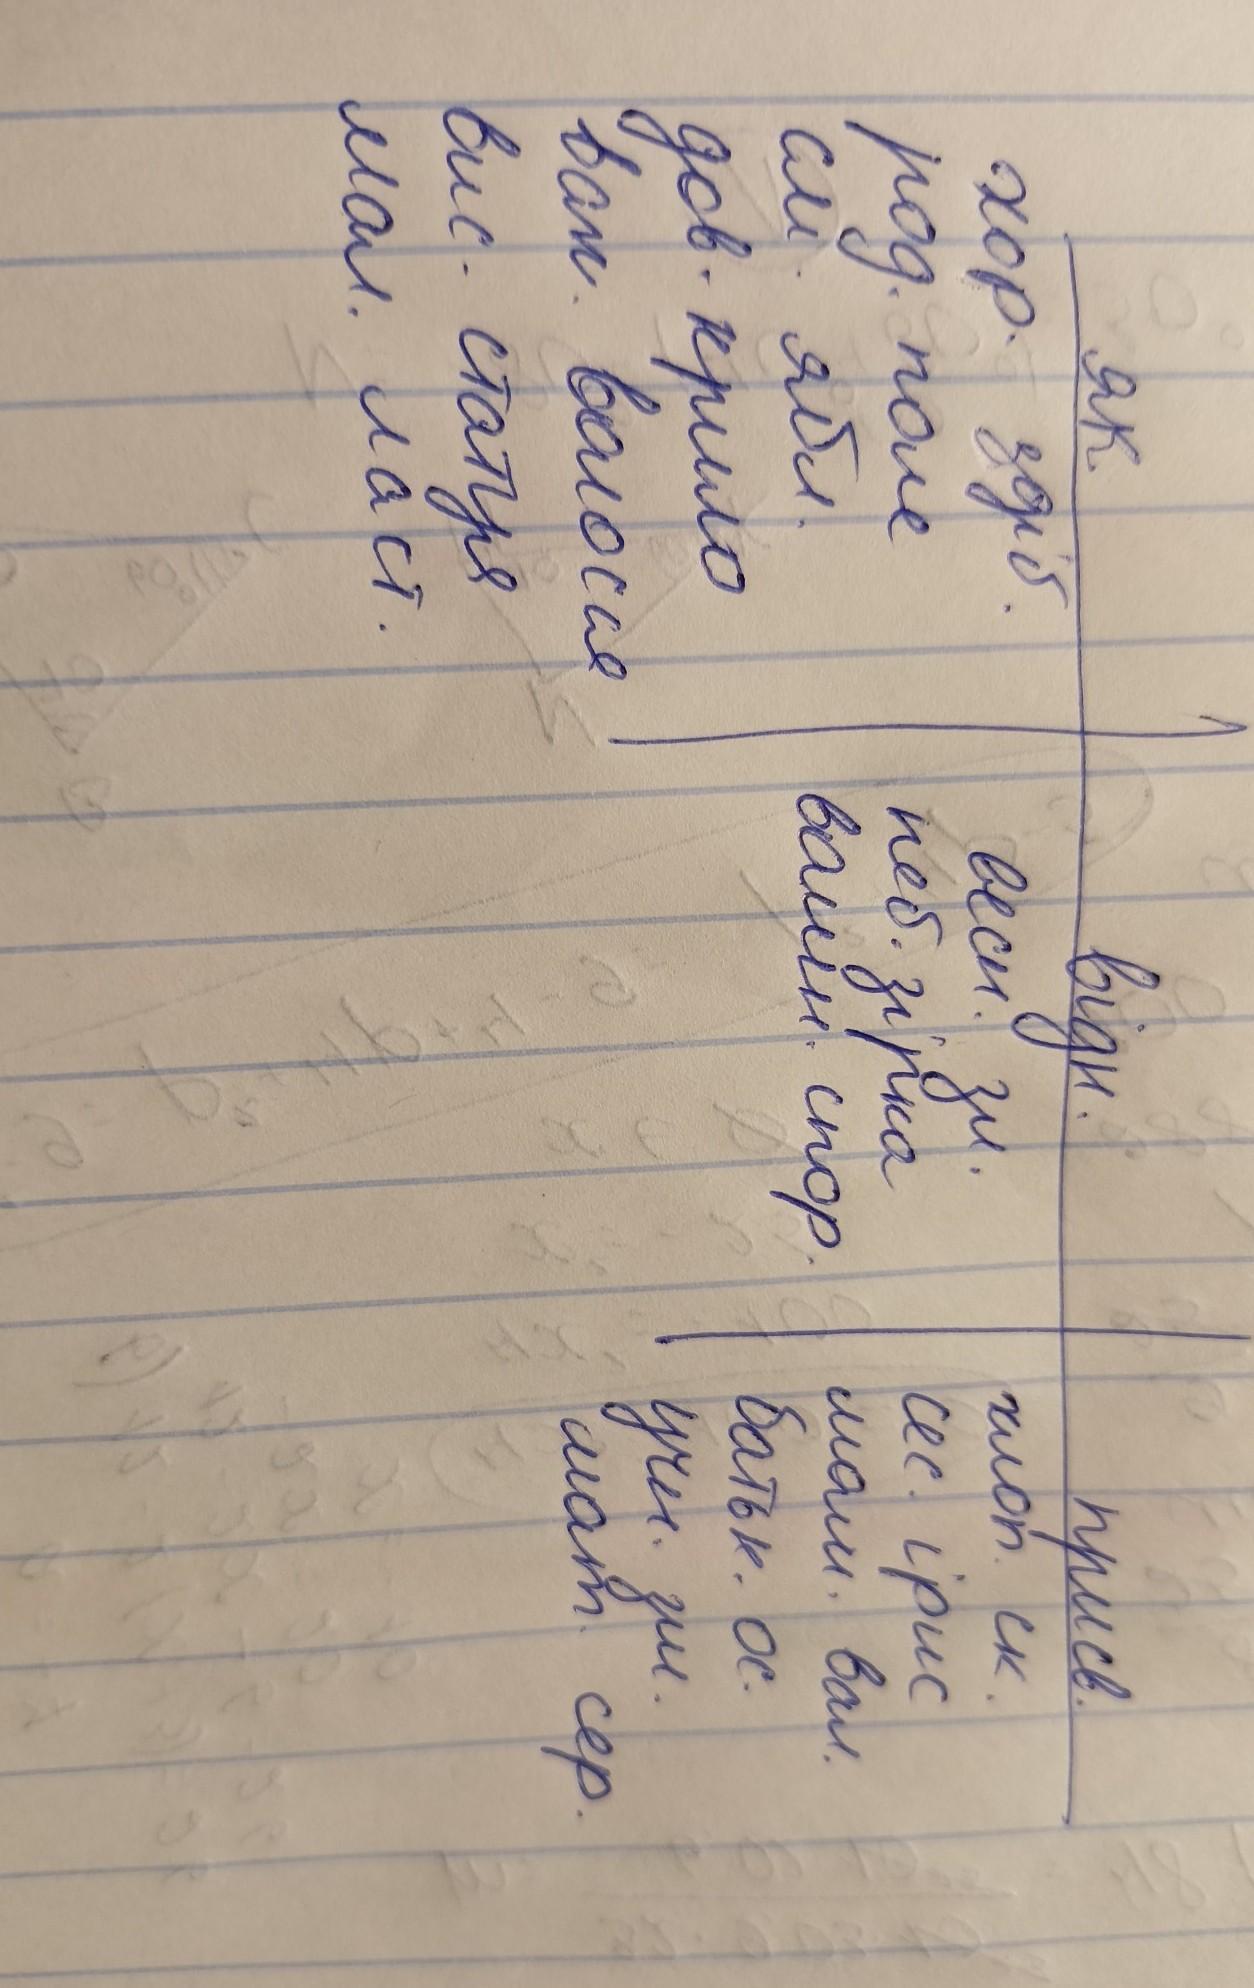 як. відн. присв.
хор. здіб. весн. зл. хлоп. ск.
род. поле неб. зірка сес. ірис
см. ябл. валин. спор. мам. вал.
дов. крило батьк. ос.
ван. волосся учн. зли.
вис. статуя мат. сер.
мал. ласт.